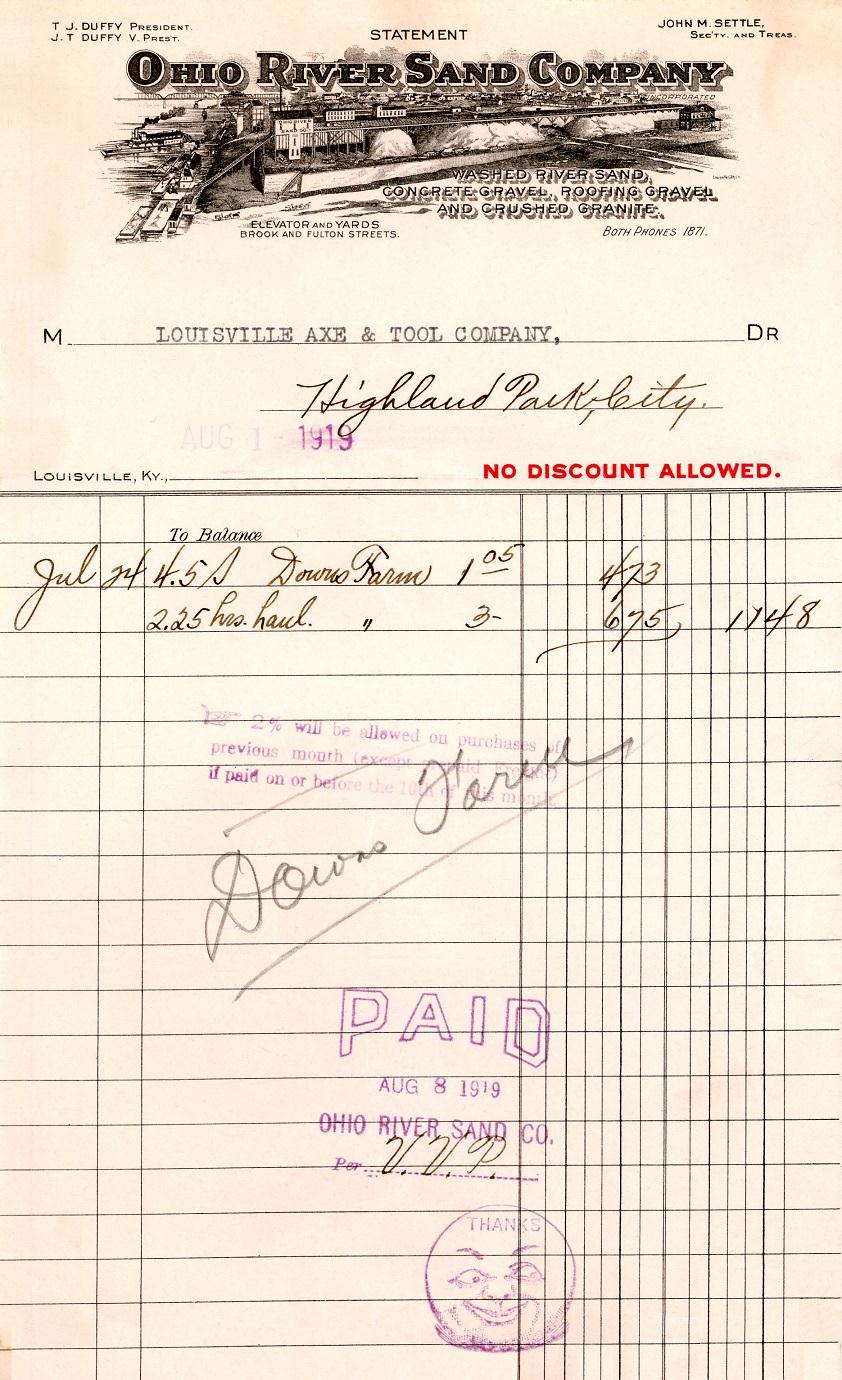 T. J. DUFFY PRESIDENT.
J. T DUFFY V. PRES'T.
STATEMENT
JOHN M. SETTLE,
SEC'TY. AND TREAS.
OHIO RIVER SAND COMPANY
INCORPORATED
WASHED RIVER SAND,
CONCRETE GRAVEL, ROOFING GRAVEL
AND CRUSHED GRANITE.
ELEVATOR AND YARDS
BROOK AND FULTON STREETS.
BOTH PHONES 1871.
M LOUISVILLE AXE & TOOL COMPANY, DR
Highland Park, City.
AUG 1 - 1919
LOUISVILLE, KY.,
NO DISCOUNT ALLOWED.
To Balance
Jul 24 4.5 S Downs Farm 1 05 4 73
2.25 hrs. haul. " 3- 6 75 11 48
2% will be allowed on purchases of
previous month (except
if paid on or before the 10th of this month.
Downs
PAID
AUG 8 1919
OHIO RIVER SAND CO.
Per V. V. P.
THANKS